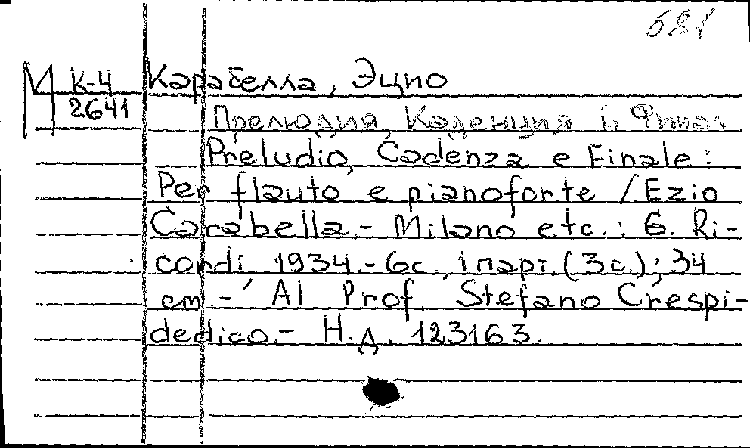 681
М К-4 Карабелла, Эцио
2641
Прелюдия, Каденция і Фінал
Preludio, Cadenza e Finale:
Per flauto e pianoforte / Ezio
Carabella.- Milano etc.: G. Ri-
cordi 1934.- 6с., 1 парт. (3с.); 34
cm -' Al Prof. Stefano Crespi-
dedico.- Н.д. 123163.